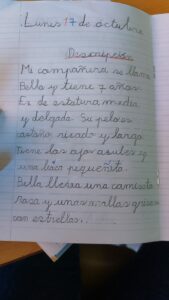 Lunes 17 de octubre
Descripción
Mi compañera se llama
Bella y tiene 7 años.
Es de estatura media
y delgada. Su pelo es
castaño, rizado y largo.
Tiene los ojos azules y
una boca pequeñita.
Bella lleva una camiseta
rosa y unas mallas grises
con estrellas.